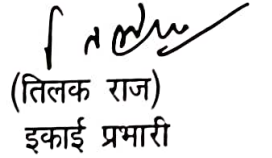 (तिलक राज)
इकाई प्रभारी